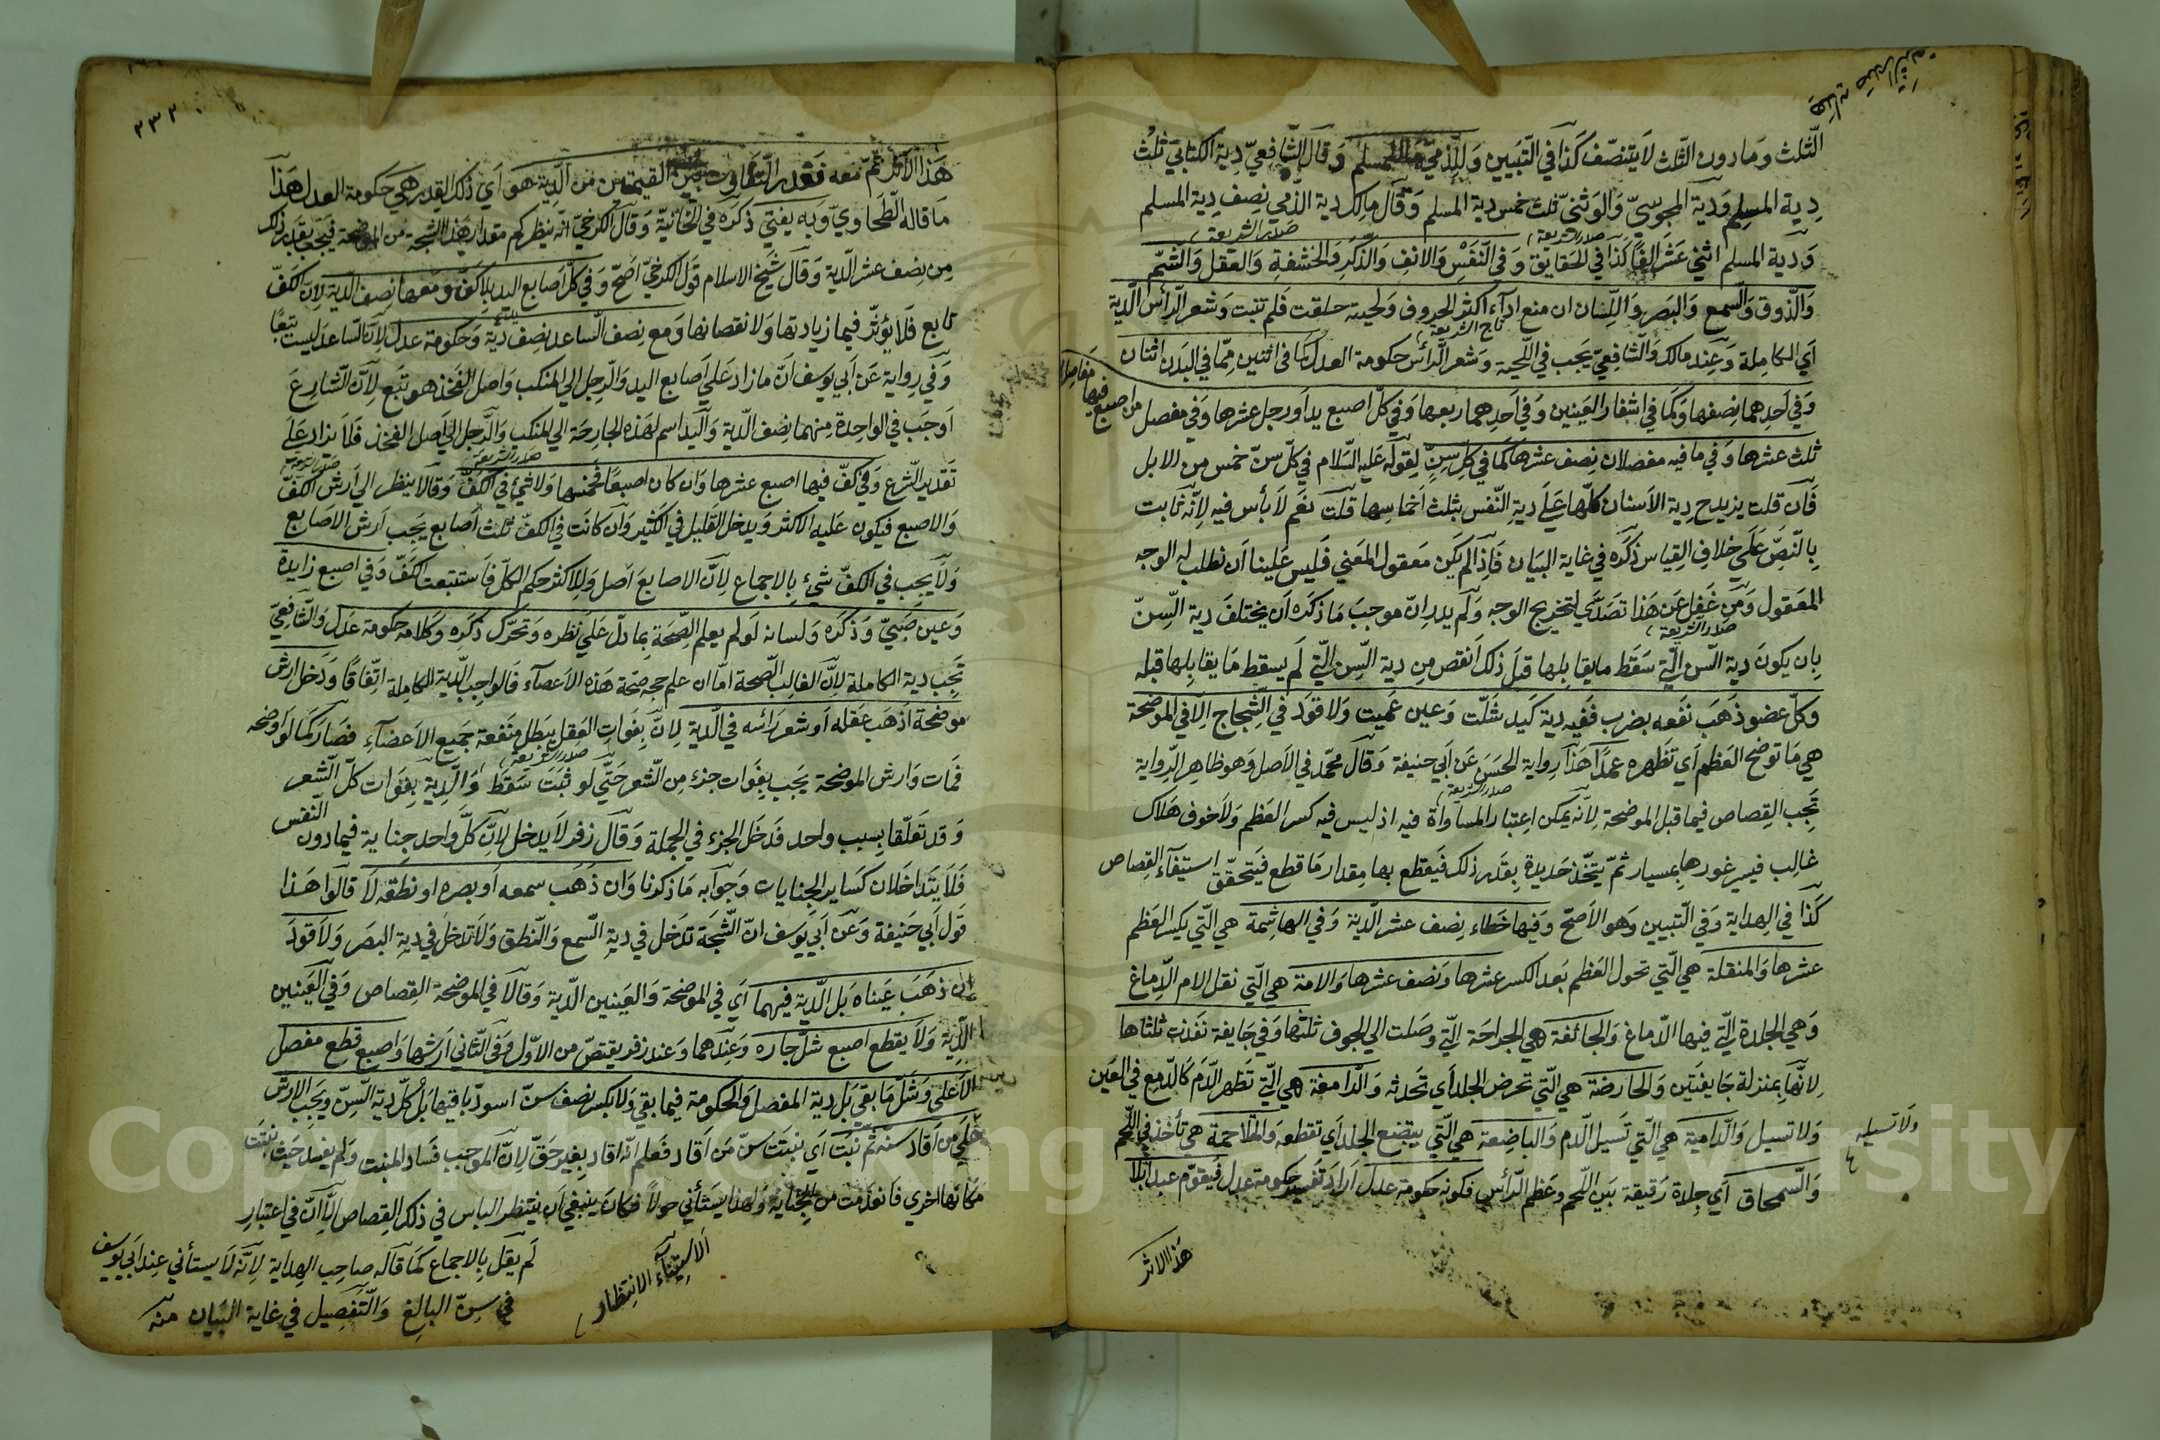 الثلث وما دون الثلث لا يتنصف كذا في التبيين وللذمي مثل المسلم وقال الشافعي دية الكتابي ثلث
دية المسلم ودية المجوسي والوثني ثلث خمس دية المسلم وقال مالك دية الذمي نصف دية المسلم
ودية المسلم اثني عشر الفا كذا في الحقايق وفي النفس والانف والذكر والحشفة والعقل والشم
والذوق والسمع والبصر واللسان ان منع اداء اكثر الحروف ولحية حلقت فلم تنبت وشعر الرأس الدية
اي الكاملة وعند مالك والشافعي يجب في اللحية وشعر الرأس حكومة العدل كما في اثنين مما في البدن اثنان
وفي احدهما نصفها وكما في اشفار العينين وفي احدهما ربعها وفي كل اصبع يد او رجل عشرها وفي مفصل من اصبع فيها مفاصل
ثلث عشرها وفي ما فيه مفصلان نصف عشرها كما في كل سن لقوله عليه السلام في كل سن خمس من الابل
فان قلت يزيد ح دية الاسنان كلها على دية النفس بثلث اخماسها قلت نعم لا بأس فيه لانه ثابت
بالنص على خلاف القياس ذكره في غاية البيان فاذا لم يكن معقول المعني فليس علينا ان نطلب له الوجه
المعقول ومن غفل عن هذا تصدي لتخريج الوجه ولم يدر ان موجب ما ذكره ان يختلف دية السن
بان يكون دية السن التي سقط ما يقابلها قبل ذلك انقص من دية السن التي لم يسقط ما يقابلها قبله
وكل عضو ذهب نفعه بضرب ففيه دية كيد شلت وعين عميت ولا قود في الشجاج الا في الموضحة
هي ما توضح العظم اي تظهره عمدا هذا رواية الحسن عن ابي حنيفة وقال محمد في الاصل وهو ظاهر الرواية
تجب القصاص فيما قبل الموضحة لانه يمكن اعتبار المساواة فيه اذ ليس فيه كسر العظم ولا خوف هلاك
غالب فيسبر غورها بمسبار ثم يتخذ حديدة بقدر ذلك فيقطع بها مقدار ما قطع فيتحقق استيفاء القصاص
كذا في الهداية وفي التبيين وهو الاصح وفيها خطاء نصف عشر الدية وفي الهاشمة هي التي يكسر العظم
عشرها والمنقلة هي التي تحول العظم بعد الكسر عشرها ونصف عشرها والامة هي التي نقل الام الدماغ
وهي الجلدة التي فيها الدماغ والجائفة هي الجراحة التي وصلت الي الجوف ثلثها وفي جايفة نفذت ثلثاها
لانها بمنزلة جايفتين والحارصة هي التي تحرص الجلد اي تخدشه والدامغة هي التي تظهر الدم كالدمع في العين
ولا تسيل والدامية هي التي تسيل الدم والباضعة هي التي يبتضع الجلد اي تقطعه والمتلاحمة هي تأخذ في اللحم
والسمحاق اي جلدة رقيقة بين اللحم وعظم الرأس فكونه حكومة عدل اراد تفسير حكومة عدل فيقوم عبد ا بلا
ولا تسيله
هذا الاثر
٢٣٢
هذا الاثر ثم معه فقدر التفاوت بين القيمتين من الدية هو اي ذلك القدر هي حكومة العدل هذا
ما قاله الطحاوي وبه يفتي ذكره في الخانية وقال الكرخي انه ينظر كم مقدار هذه الشجة من الموضحة فيجب بقدر ذلك
من نصف عشر الدية وقال شيخ الاسلام قول الكرخي اصح وفي كل اصابع اليد بلا كف ومعها نصف الدية لان الكف
تابع فلا يؤثر فيما زيادتها ولا نقصانها ومع نصف الساعد نصف دية وحكومة عدل لان الساعد ليست تبعا
وفي رواية عن ابي يوسف ان ما زاد علي اصابع اليد والرجل الي المنكب واصل الفخذ هو تبع لان الشارع
اوجب في الواحدة منهما نصف الدية واليد اسم لهذه الجارحة الي المنكب والرجل الي اصل الفخذ فلا يزاد علي
تقدير الشرع وفي كف فيها اصبع عشرها وان كان اصبعا فخمسها ولا شئ في الكف وقالا ينظر الي ارش الكف
والاصبع فيكون عليه الاكثر ويدخل القليل في الكثير وان كانت في الكف ثلث اصابع يجب ارش الاصابع
ولا يجب في الكف شئ بالاجماع لان الاصابع اصل وللاكثر حكم الكل فاستتبعت الكف وفي اصبع زايدة
وعين صبي وذكره ولسانه لو لم يعلم الصحة بما دل علي نظره وتحرك ذكره وكلامه حكومة عدل والشافعي
تجب دية الكاملة لان الغالب الصحة اما ان علم صحة هذه الاعضاء فالواجب الدية الكاملة اتفاقا ودخل ارش
موضحة اذهب عقله او شعر رأسه في الدية لان بفوات العقل يبطل منفعة جميع الاعضاء فصار كما لو اوضحه
فمات وارش الموضحة يجب بفوات جزء من الشعر حتي لو نبت سقط والدية بفوات كل الشعر
وقد تعلقا بسبب واحد فدخل الجزء في الجملة وقال زفر لا يدخل لان كل واحد جناية فيما دون النفس
فلا يتداخلان كساير الجنايات وجوابه ما ذكرنا وان ذهب سمعه او بصره او نطقه لا قالوا هذا
قول ابي حنيفة وعن ابي يوسف ان الشجة تدخل في دية السمع والنطق ولا تدخل في دية البصر ولا قود
ان ذهب عيناه بل الدية فيهما اي في الموضحة والعينين الدية وقالا في الموضحة القصاص وفي العينين
الدية ولا يقطع اصبع شل جاره وعندهما وعند زفر يقتص من الاول وفي الثاني ارشها واصبع قطع مفصل
الاعلي وشل ما بقي بل دية المفصل والحكومة فيما بقي ولا بكسر نصف سن اسود باقيها بل كل دية السن ويجب الارش
علي من اقاد سنه ثم نبت اي نبتت سن من اقاد فعلم انه اقاد بغير حق لان الموجب فساد المنبت ولم يفسد حيث نبتت
مكانها اخري فانعدمت من الجناية ولهذا يستأني حولا فكان ينبغي ان ينتظر الياس في ذلك القصاص الا ان في اعتبار
لم يقل بالاجماع كما قاله صاحب الهداية لانه لا يستأني عند ابي يوسف
في سن البالغ والتفصيل في غاية البيان منه
الاستيناء الانتظار
Copyright © King Saud University